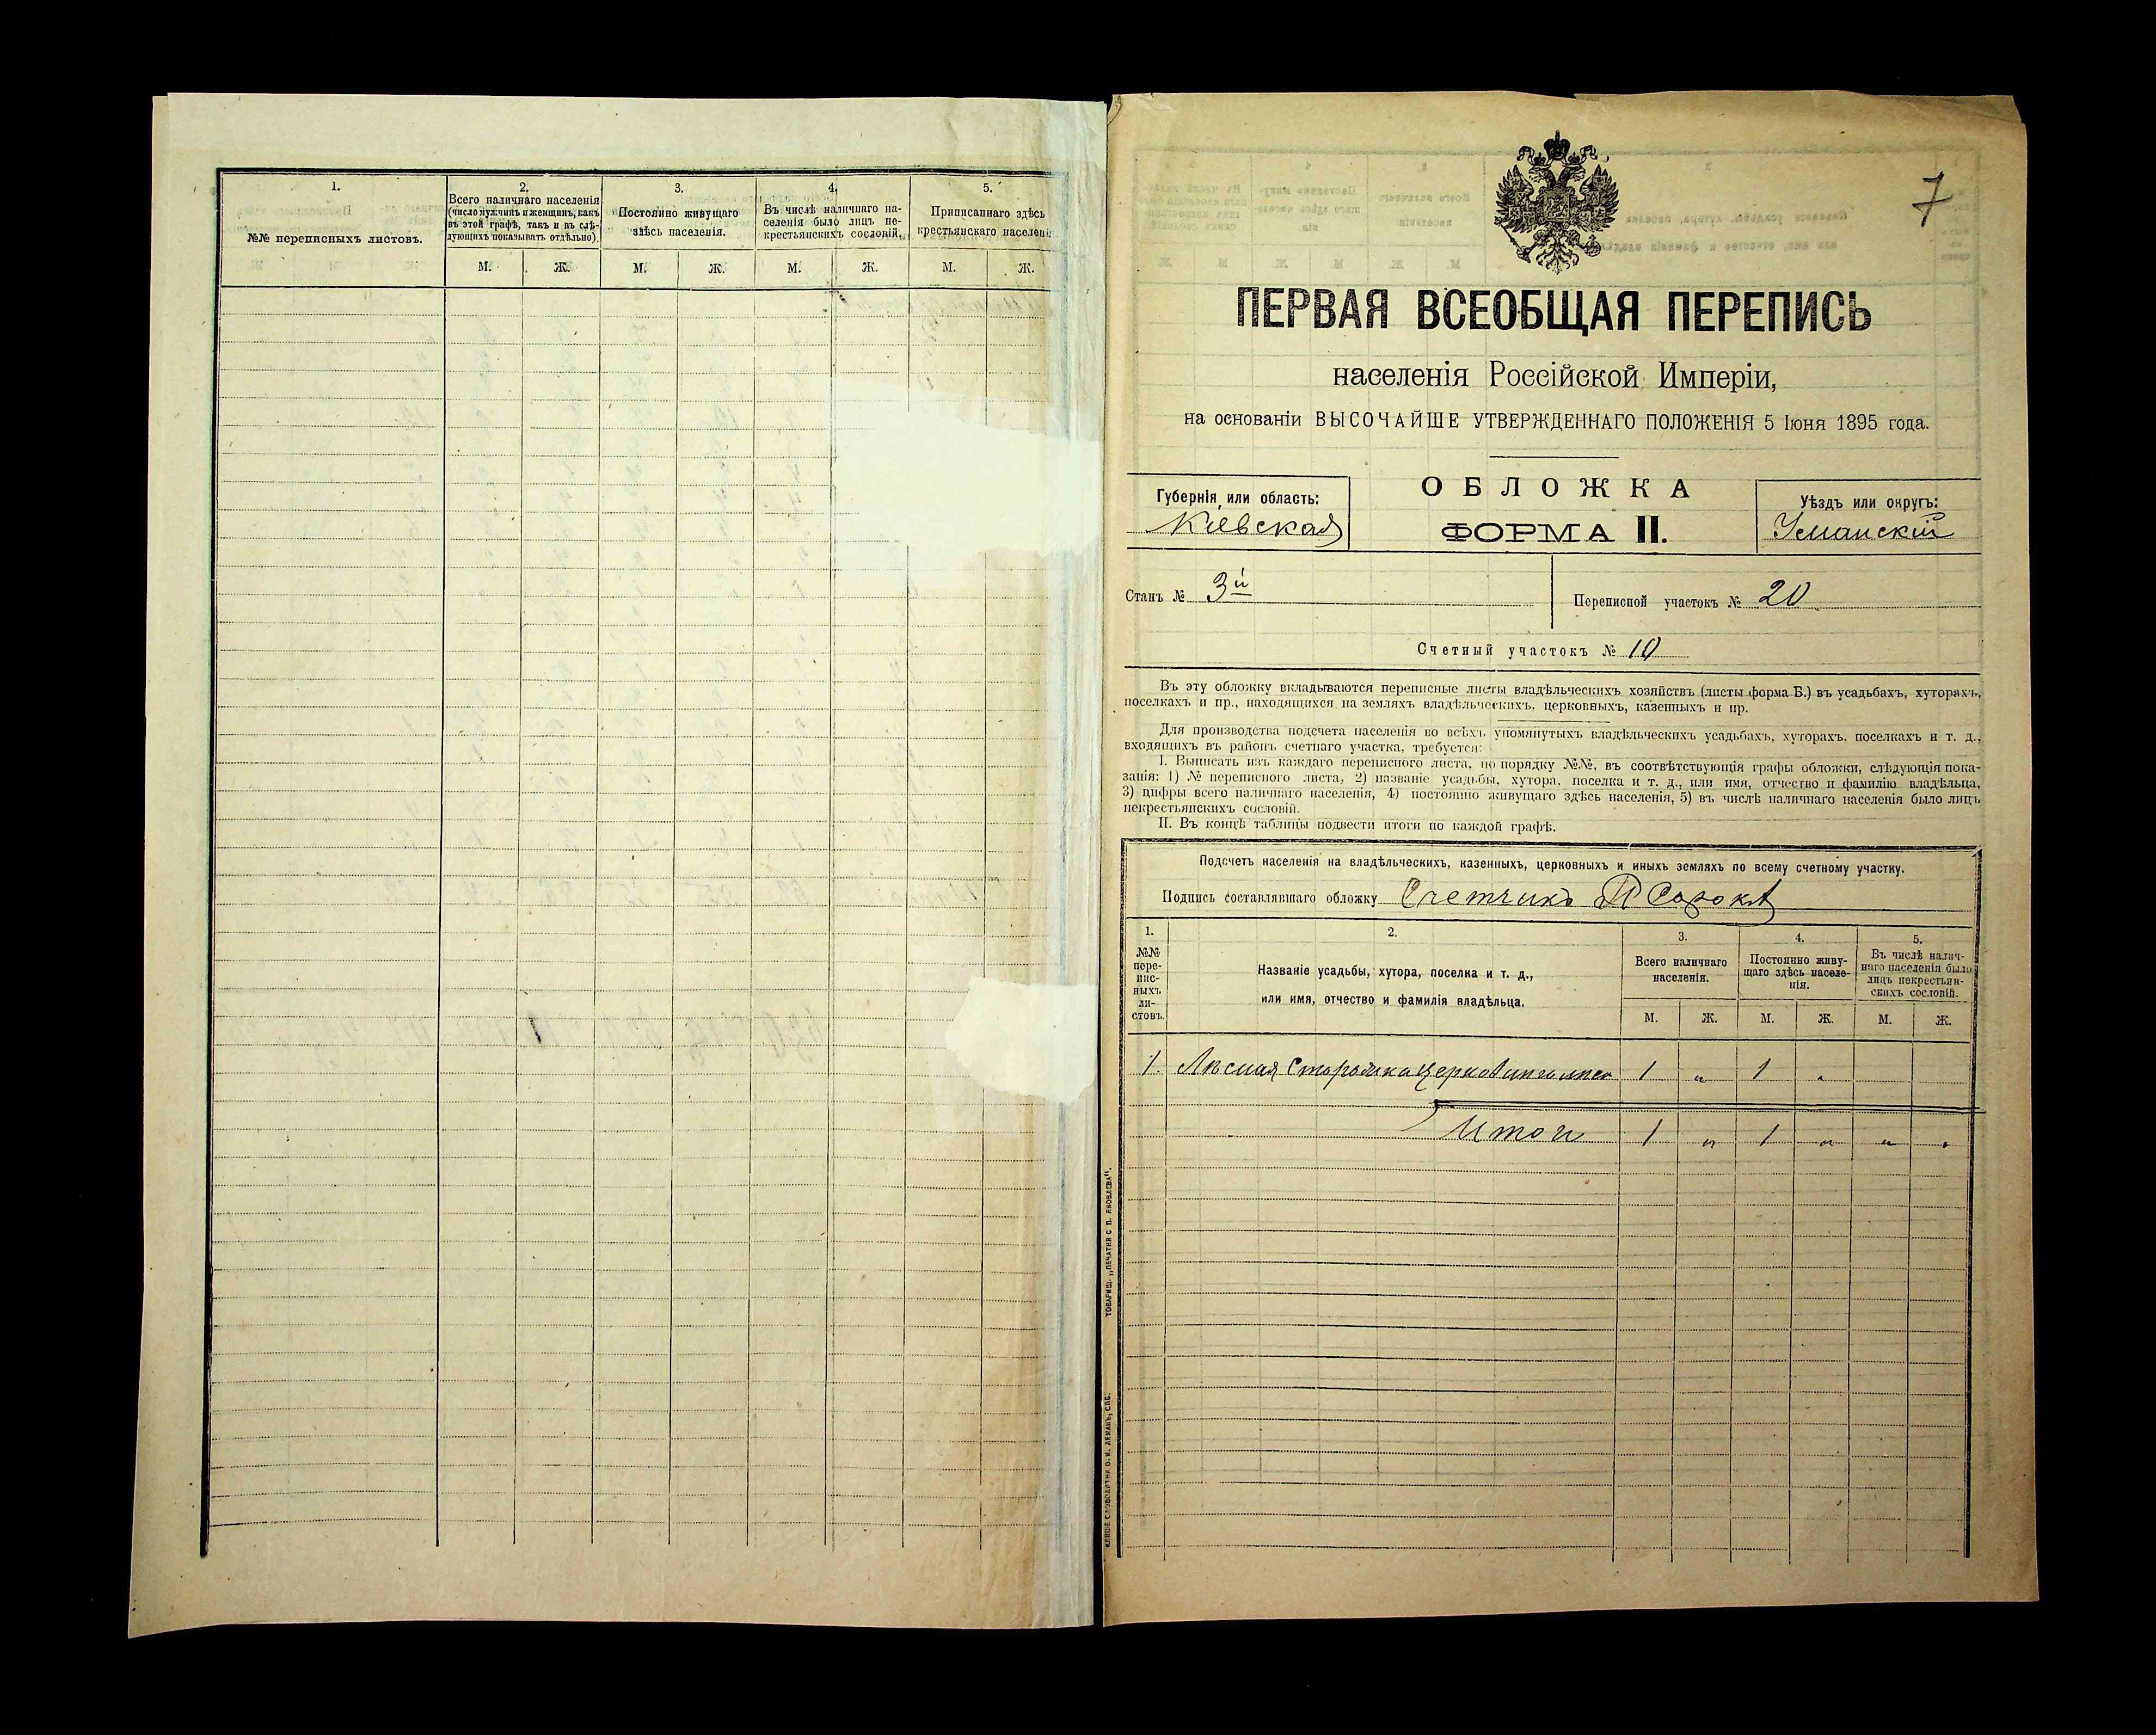 1.
№№ переписныхъ листовъ.
2.
Всего наличнаго населенія
(число мужчинъ и женщинъ, какъ
въ этой графѣ, такъ и въ слѣ-
дующихъ показывать отдѣльно).
3.
Постоянно живущаго
здѣсь населенія.
4.
Въ числѣ наличнаго на-
селенія было лицъ не-
крестьянскихъ сословій.
5.
Приписаннаго здѣсь
крестьянскаго населенія
М. Ж. М. Ж. М. Ж. М. Ж.
7
ПЕРВАЯ ВСЕОБЩАЯ ПЕРЕПИСЬ
населенія Россійской Имперіи,
на основаніи ВЫСОЧАЙШЕ УТВЕРЖДЕННАГО ПОЛОЖЕНІЯ 5 Іюня 1895 года.
Губернія или область:
Кіевская
ОБЛОЖКА
ФОРМА II.
Уѣздъ или округъ:
Уманскій
Станъ № 3й
Переписной участокъ № 20
Счетный участокъ № 10
Въ эту обложку вкладываются переписные листы владѣльческихъ хозяйствъ (листы форма Б.) въ усадьбахъ, хуторахъ,
поселкахъ и пр., находящихся на земляхъ владѣльческихъ, церковныхъ, казенныхъ и пр.
Для производства подсчета населенія во всѣхъ упомянутыхъ владѣльческихъ усадьбахъ, хуторахъ, поселкахъ и т. д.,
входящихъ въ районъ счетнаго участка, требуется:
I. Выписать изъ каждаго переписного листа, по порядку №№, въ соотвѣтствующія графы обложки, слѣдующія пока-
занія: 1) № переписного листа, 2) названіе усадьбы, хутора, поселка и т. д., или имя, отчество и фамилію владѣльца,
3) цифры всего наличнаго населенія, 4) постоянно живущаго здѣсь населенія, 5) въ числѣ наличнаго населенія было лицъ
некрестьянскихъ сословій.
II. Въ концѣ таблицы подвести итоги по каждой графѣ.
Подсчетъ населенія на владѣльческихъ, казенныхъ, церковныхъ и иныхъ земляхъ по всему счетному участку.
Подпись составлявшаго обложку Счетчикъ П Сорока
1.
№№
пере-
пис-
ныхъ
ли-
стовъ.
2.
Названіе усадьбы, хутора, поселка и т. д.,
или имя, отчество и фамилія владѣльца.
3.
Всего наличнаго
населенія.
4.
Постоянно живу-
щаго здѣсь населе-
нія.
5.
Въ числѣ налич-
наго населенія было
лицъ некрестьян-
скихъ сословій.
М. Ж. М. Ж. М. Ж.
1. Лѣсная Сторожка 1 " 1 "
Итог 1 " 1 " " "
ТОВАРИЩ. „ПЕЧАТНЯ С П. ЯКОВЛЕВА".
КЛИШЕ СЛОВОЛИТНИ О. И. ЛЕМАНЪ, СПБ.